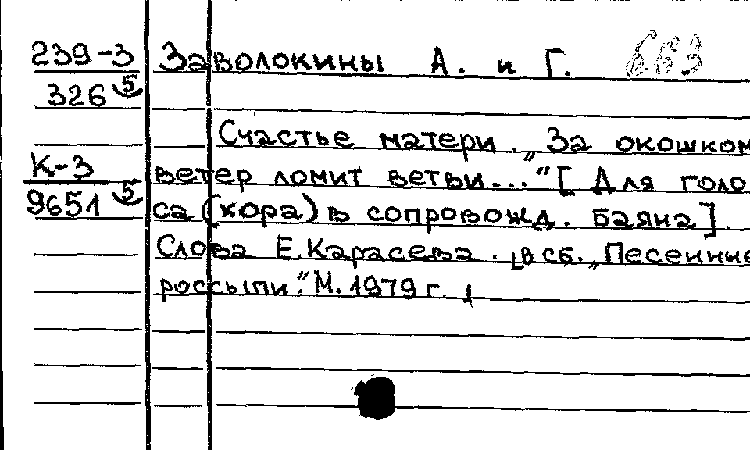 239-3 Заволокины А. и Г. 663
326 5
Счастье матери. „За окошком
К-3 ветер ломит ветви..." [Для голо-
9651 5 са (хора) в сопровожд. баяна]
Слова Е. Карасева. [В сб. „Песенные
россыпи". М. 1979 г. ]